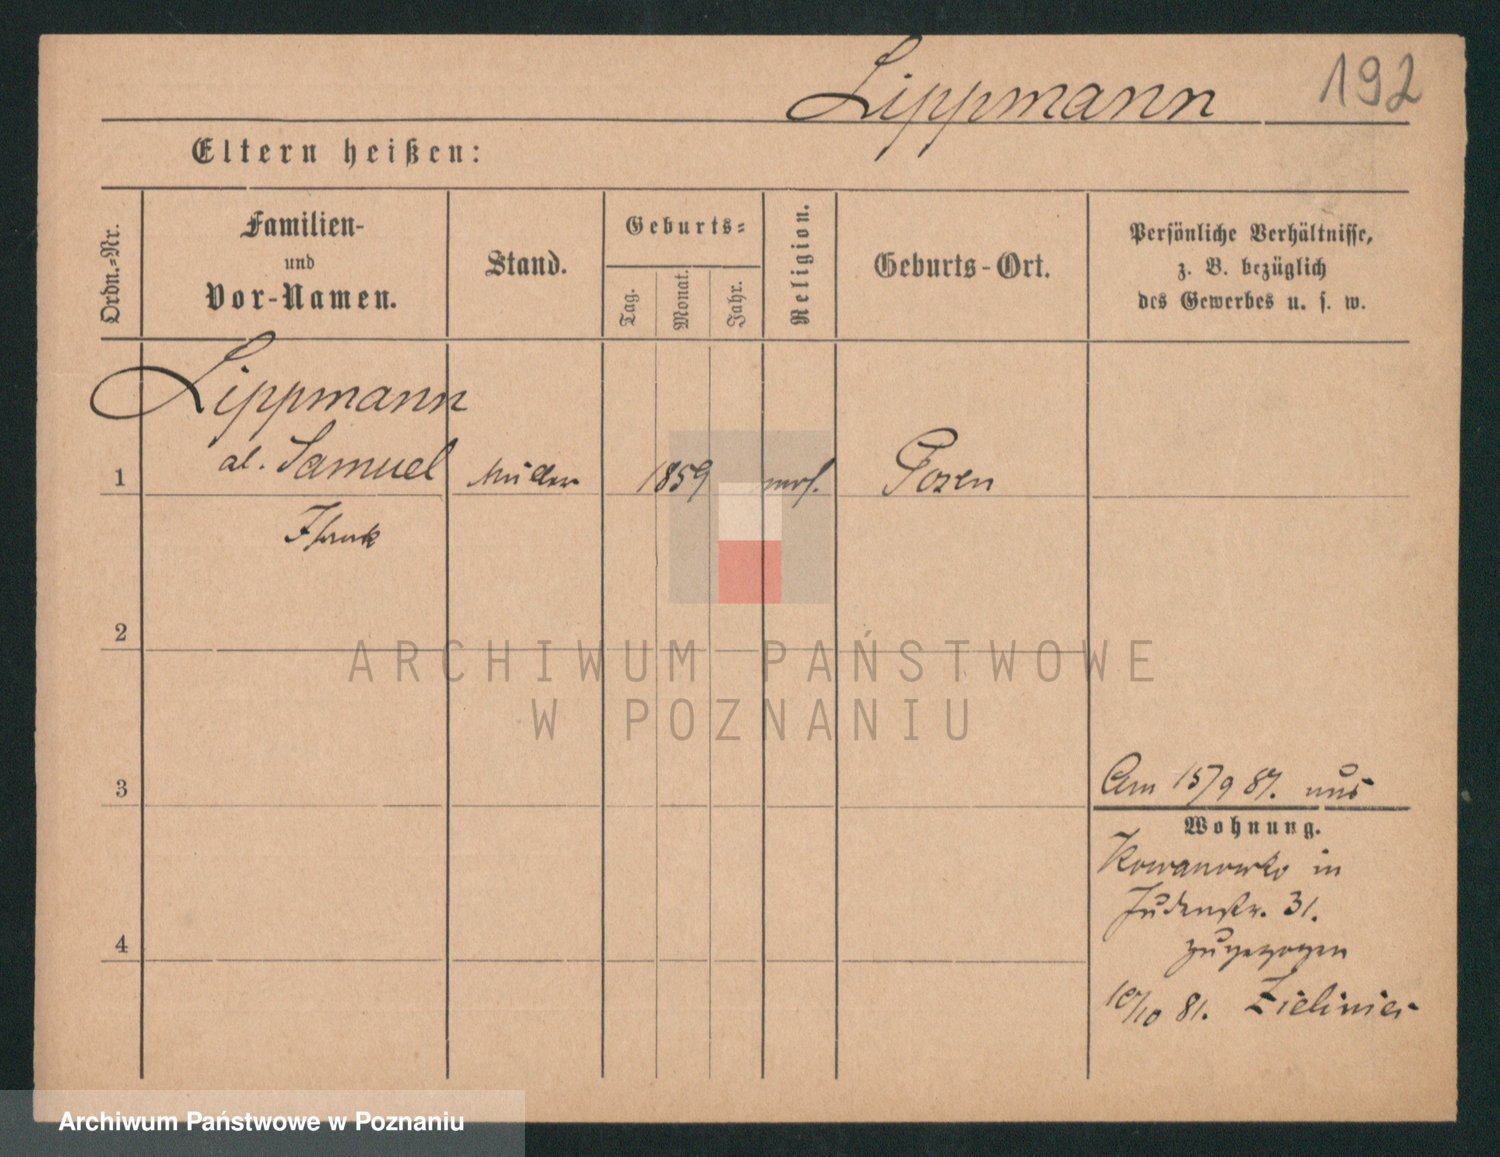 Lippmann 192
Eltern heißen:
Ordn.-Nr.
Familien-
und
Vor-Namen.
Stand.
Geburts-
Tag.
Monat.
Jahr.
Religion.
Geburts-Ort.
Persönliche Verhältnisse,
z. B. bezüglich
des Gewerbes u. s. w.
Lippmann
1 al. Samuel Müller 1859 mos. Posen
2
3
Am 15/9 81. aus
Wohnung.
Kowanowko in
Judenstr. 31.
4
zugezogen
10/10 81.
ARCHIWUM PAŃSTWOWE
W POZNANIU
Archiwum Państwowe w Poznaniu